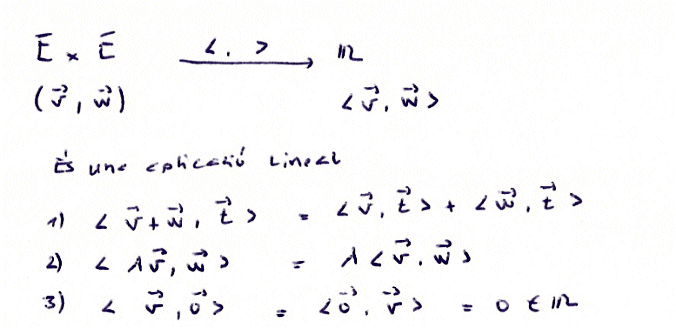 Ē × Ē --< , >--> ℝ
(v⃗, w⃗) <v⃗, w⃗>
És una aplicació lineal
1) < v⃗ + w⃗, t⃗ > = < v⃗, t⃗ > + < w⃗, t⃗ >
2) < λv⃗, w⃗ > = λ < v⃗, w⃗ >
3) < v⃗, o⃗ > = < o⃗, v⃗ > = 0 ∈ ℝ